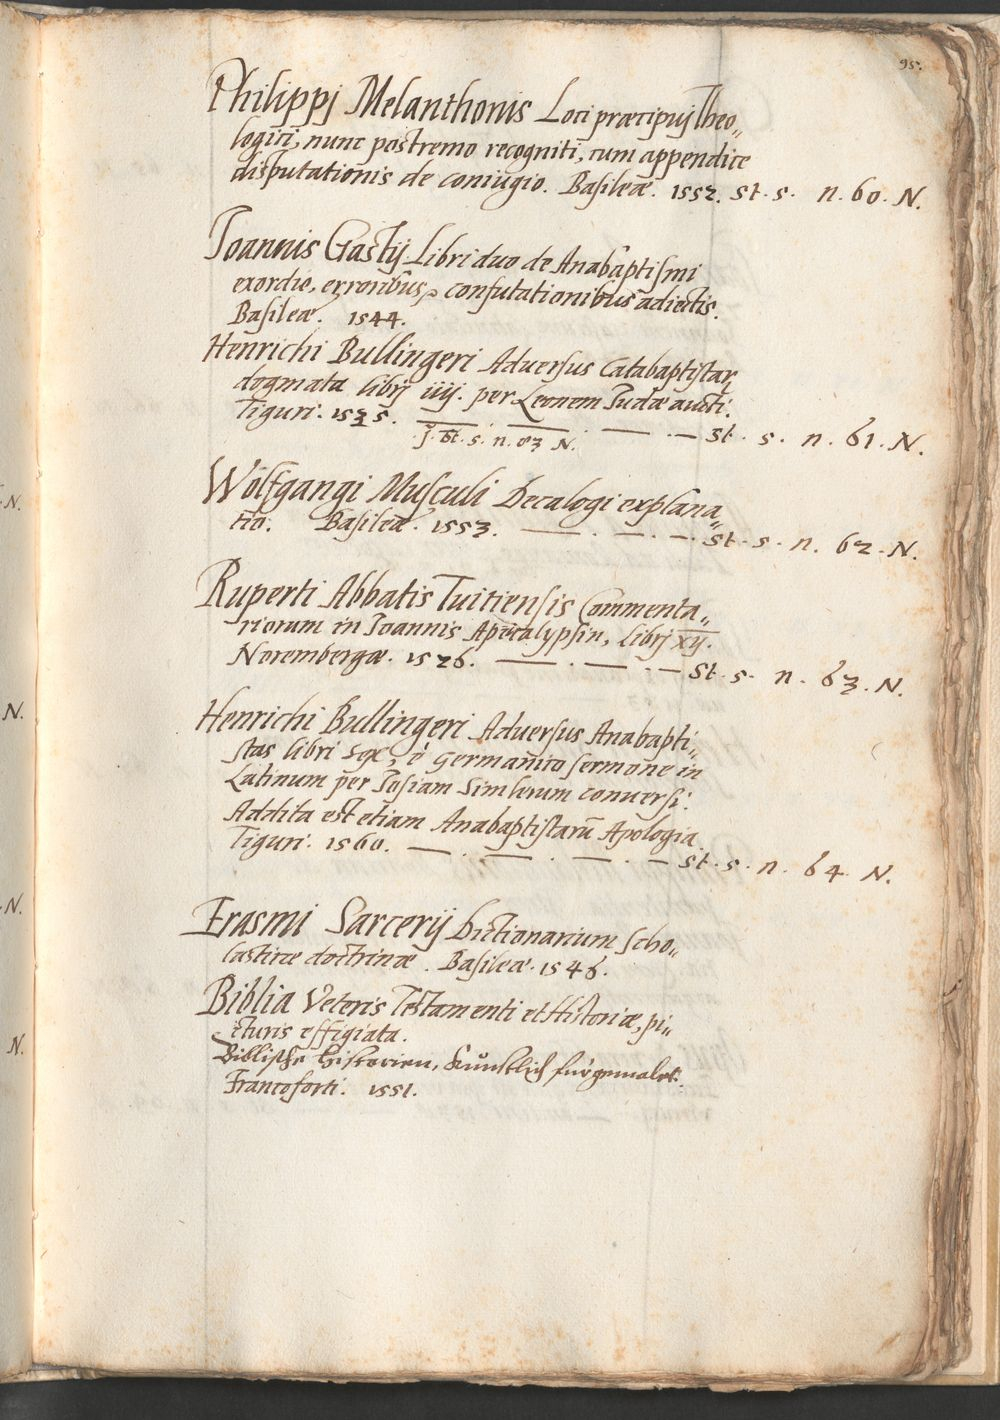 95.
Philippj Melanthonis Loci præcipuj Theo„
logici, nunc postremo recogniti, cum appendice
disputationis de coniugio. Basileæ. 1552. St. s. n. 60. N.
Joannis Gastij Libri duo de Anabaptismi
exordio, erroribus, confutationibus adiectis.
Basileæ. 1544.
Henrichi Bullingeri Adversus Catabaptistarū
dogmata librj iiij. per Leonem Judæ aucti.
Tiguri. 1535. — . — . — . — St. s. n. 61. N.
j. St. s. n. 83 N.
Wolfgangi Musculi Decalogi explana„
tio. Basileæ. 1553. — . — . — . St. s. n. 62. N.
Ruperti Abbatis Tuitiensis Commenta„
riorum in Joannis Apocalypsin, librj xij.
Norembergæ. 1526. — . — . — St. s. n. 63. N.
Henrichi Bullingeri Adversus Anabapti„
stas libri sex, è germanico sermone in
Latinum per Josiam Simlerum conversi.
Addita est etiam Anabaptistarū Apologia.
Tiguri. 1560. — . — . — . — St. s. n. 64. N.
Erasmi Sarcerij Dictionarium Scho„
lasticæ doctrinæ. Basileæ. 1546.
Biblia Veteris Testamenti et Historiæ, pi„
cturis effigiata.
Biblische Historien, Künstlich fürgemalet.
Francoforti. 1551.
N.
N.
N.
N.